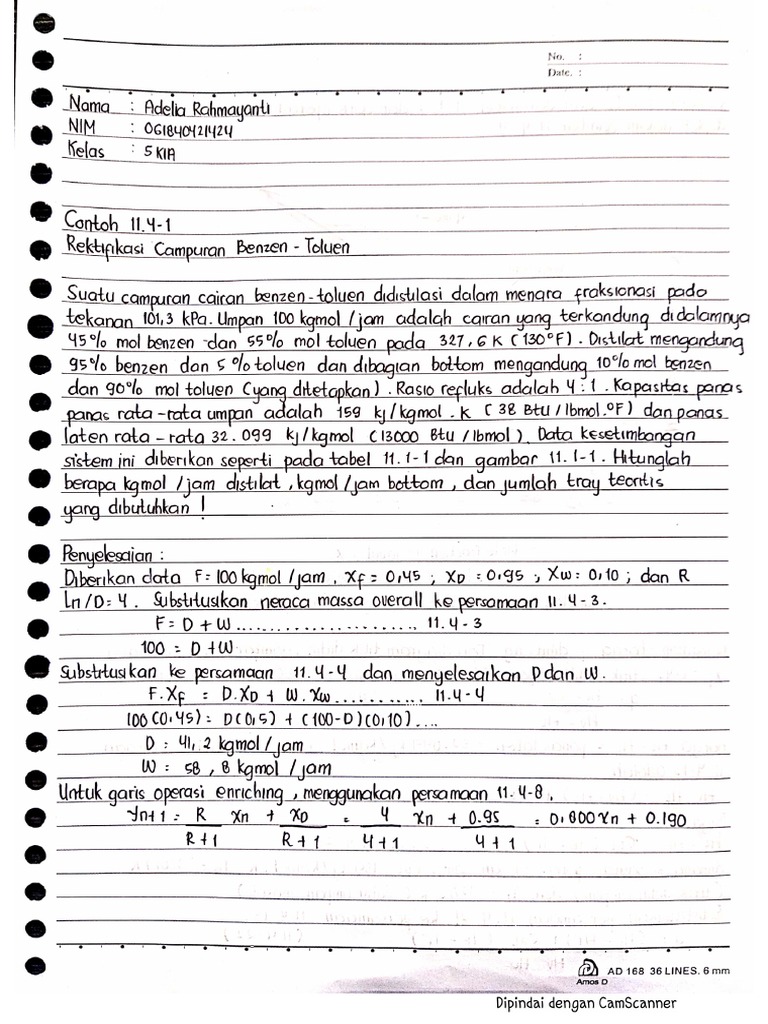 No. :
Date. :
Nama : Adelia Rahmayanti
NIM : 061840421424
Kelas : 5 KIA
Contoh 11.4-1
Rektifikasi Campuran Benzen - Toluen
Suatu campuran cairan benzen-toluen didistilasi dalam menara fraksionasi pada
tekanan 101,3 kPa. Umpan 100 kgmol/jam adalah cairan yang terkandung didalamnya
45% mol benzen dan 55% mol toluen pada 327,6 K (130°F). Distilat mengandung
95% benzen dan 5% toluen dan dibagian bottom mengandung 10% mol benzen
dan 90% mol toluen (yang ditetapkan). Rasio refluks adalah 4:1. Kapasitas panas
panas rata-rata umpan adalah 159 kj/kgmol.K (38 Btu/lbmol.°F) dan panas
laten rata-rata 32.099 kj/kgmol (13000 Btu/lbmol). Data kesetimbangan
sistem ini diberikan seperti pada tabel 11.1-1 dan gambar 11.1-1. Hitunglah
berapa kgmol/jam distilat, kgmol/jam bottom, dan jumlah tray teoritis
yang dibutuhkan!
Penyelesaian :
Diberikan data F = 100 kgmol/jam, Xf = 0,45 ; XD = 0,95 ; Xw = 0,10 ; dan R
Ln/D = 4. Substitusikan neraca massa overall ke persamaan 11.4-3.
F = D + W ..................... 11.4-3
100 = D + W
Substitusikan ke persamaan 11.4-4 dan menyelesaikan D dan W.
F.Xf = D.XD + W.Xw ........... 11.4-4
100(0,45) = D(0,5) + (100-D)(0,10)....
D = 41,2 kgmol/jam
W = 58,8 kgmol/jam
Untuk garis operasi enriching, menggunakan persamaan 11.4-8.
yn+1 = R xn + xD = 4 xn + 0.95 = 0.800xn + 0.190
R+1 R+1 4+1 4+1
AD 168 36 LINES. 6 mm
Amos D
Dipindai dengan CamScanner